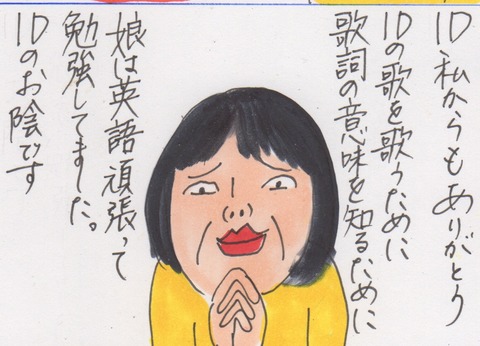 1D、私からもありがとう
1Dの歌を歌うために
歌詞の意味を知るために
娘は英語頑張って
勉強してました。
1Dのお陰です